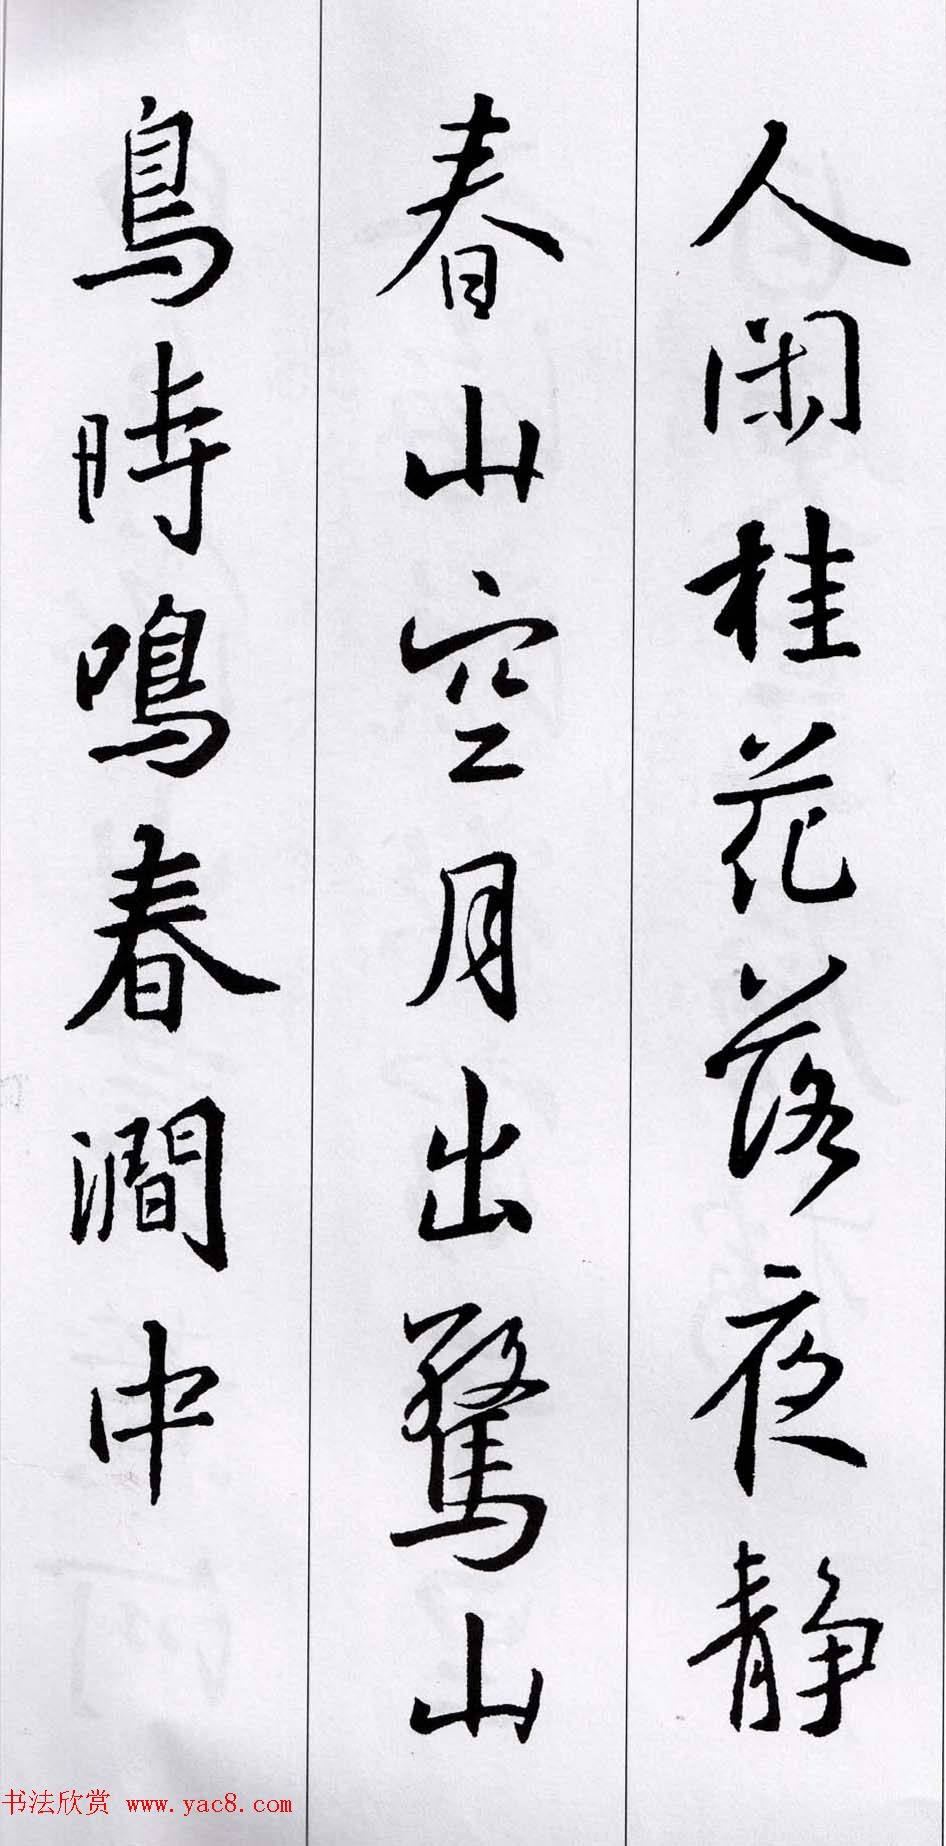 人閑桂花落夜静
春山空月出驚山
鳥時鳴春澗中
书法欣赏 www.yac8.com